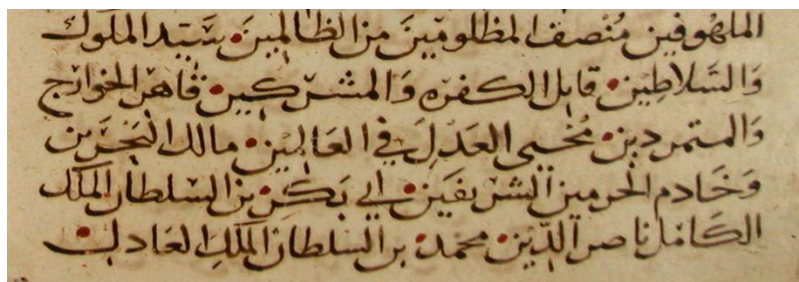 الملهوفين مُنْصف المظلومِينَ من الظالمِينَ سَيّد الملوك
وَالسَّلاطِين قاتل الكفره وَالمشركين قاهر الخوارج
وَالمتمردين مُحْيي العَدْلِ في العَالمين مالك البَحْرَين
وَخَادم الحرمين الشريفَين ابي بَكر بن السلطان الملك
الكَامل ناصر الدّين محمد بن السلطان الملك العَادل